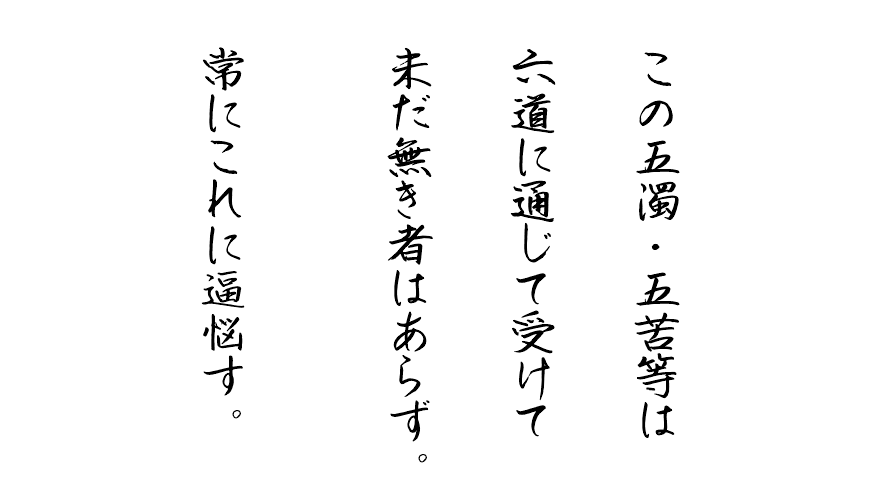 この五濁・五苦等は
六道に通じて受けて
未だ無き者はあらず。
常にこれに逼悩す。